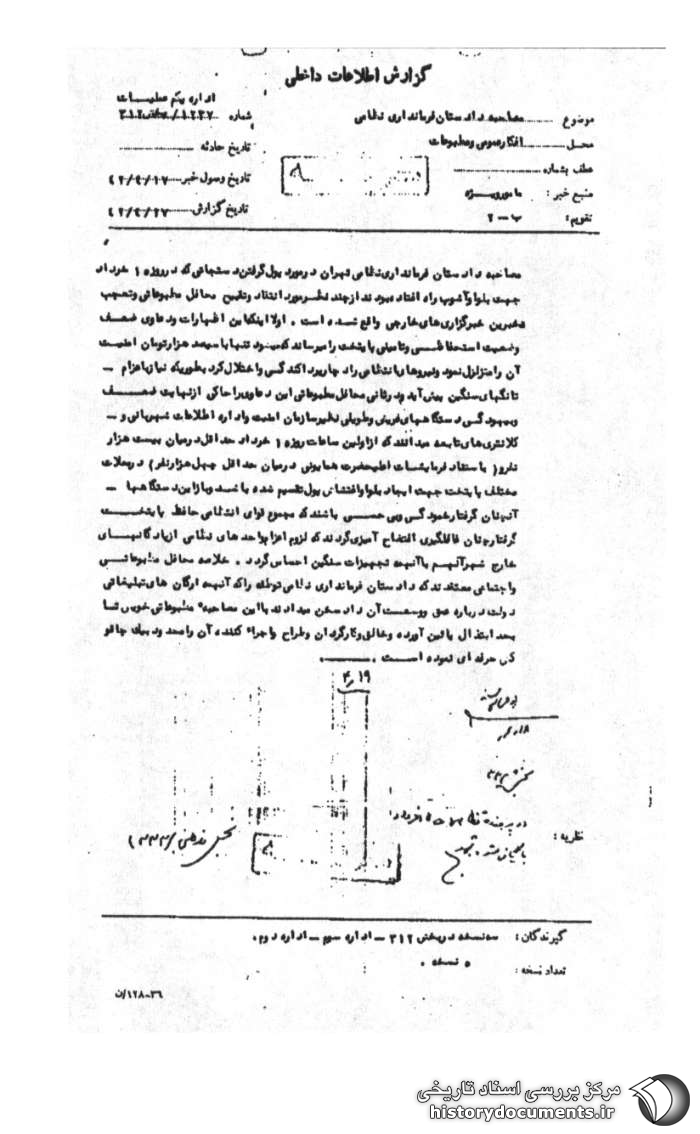 گزارش اطلاعات داخلی
اداره یکم عملیات
موضوع مصاحبه دادستان فرمانداری نظامی
شماره
محل افکار عمومی و مطبوعات
تاریخ حادثه
عطف بشماره
تاریخ وصول خبر ۴۲/۴/۱۷
منبع خبر : مامور ویژه
تاریخ گزارش ۴۲/۴/۲۷
تقویم: ب - ۲
مصاحبه دادستان فرمانداری نظامی تهران در مورد پول گرفتن دستجاتی که در روز ۱۵ خرداد
جهت بلوا و آشوب راه افتاده بودند از چند نظر مورد انتقاد و تقبیح محافل مطبوعاتی و تعجب
مخبرین خبرگزاری های خارجی واقع شده است . اولا اینکه این اظهارات و دعاوی ضعف
وضعیت استحفاظی و تامینی پایتخت را میرساند که میشود تنها با سیصد هزار تومان امنیت
آن را متزلزل نمود و نیروها و انتظامی را دچار پراکندگی و اختلال کرد بطوریکه نیاز به اعزام –
تانکهای سنگین پیش آید و در ثانی محافل مطبوعاتی این دعاوی را حاکی از نهایت ضعف
و بیهودگی دستگاههای عریض و طویلی نظیر سازمان امنیت و اداره اطلاعات شهربانی و –
کلانتری های تابعه میدانند که از اولین ساعات روز ۱۵ خرداد حداقل در میان بیست هزار
نفر و ( با ستناد فرمایشات اعلیحضرت همایونی در میان حداقل چهل هزار نفر ) در محلات
مختلف پایتخت جهت ایجاد بلوا و اغتشاش پول تقسیم شده باشد و باز این دستگاهها –
آنچنان گرفتار خمودگی و بی حسی باشند که مجموع قوای انتظامی حافظ پایتخت
گرفتار چنان غافلگیری افتضاح آمیزی گردند که لزوم اعزام واحدهای نظامی از پادگانهای
خارج شهر آنهم با آنهمه تجهیزات سنگین احساس گردد . خلاصه محافل مطبوعاتی
و اجتماعی معتقدند که دادستان فرمانداری نظامی توطئه را که آنهمه ارگان های تبلیغاتی
دولت درباره عمق و وسعت آن داد سخن میدادند با این مصاحبه مطبوعاتی خویش تا
بحد ابتذال پائین آورده و خالق و کارگردان و طراح و اجراء کننده آن را محدود بیک چاقو
کش حرفه ای نموده است .
۴/۱۹
بخش ۳۲۲
نظریه :
گیرندگان : سه نسخه در بخش ۳۱۲ – اداره سوم – اداره دوم .
تعداد نسخه : ۵ نسخه .
۳۶-۱۲۸/ن
مرکز بررسی اسناد تاریخی
historydocuments.ir